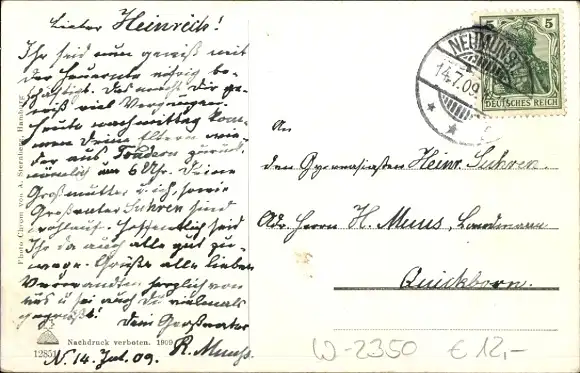 Lieber Heinrich!
Ihr seid nun gewiß mit
der Heuernte eifrig be-
schäftigt. Das macht Dir ge-
wiß viel Vergnügen.
Heute nachmittag kom-
men Deine Eltern wie-
der aus Tondern zurück,
nämlich um 6 Uhr. Deine
Großmutter u. ich, sowie
Großvater Suhren sind
wohlauf. Hoffentlich seid
Ihr da auch alle gut zu-
wege. Grüße alle lieben
Verwandten herzlich von
uns u. sei auch Du vielmals
gegrüßt!
Dein Großvater
R. Muuss.
N. 14. Jul. 09.
Photo Chrom von A. Sternberg, Hamburg
Nachdruck verboten. 1909
12851
5 5
DEUTSCHES REICH
NEUMÜNSTER
14.7.09.
An
den Gymnasiasten Heinr. Suhren.
Adr. Herrn H. Muus, Landmann
Quickborn.
W-2350 € 12,-